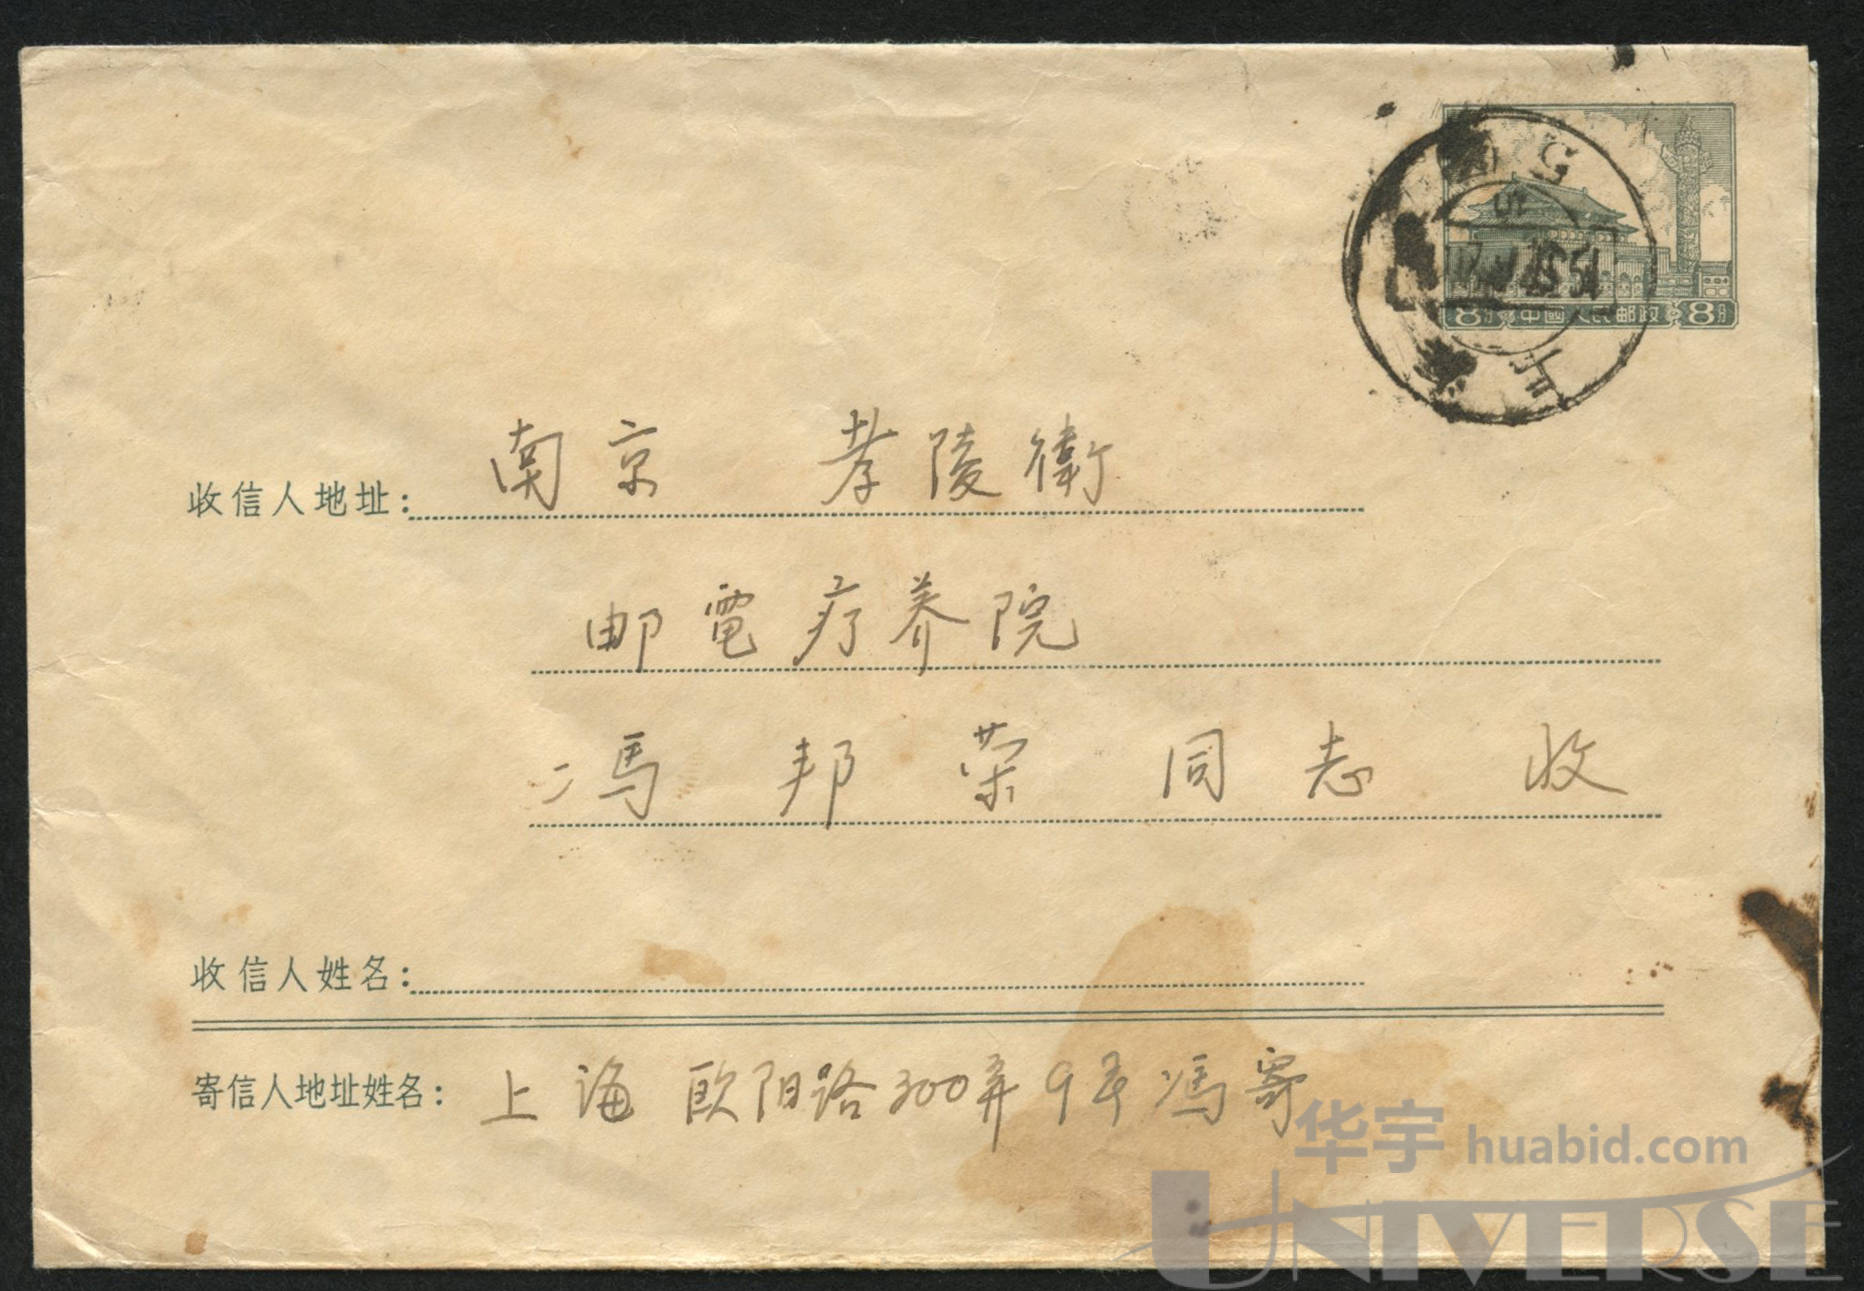 8分 中國人民邮政 8分
上海
收信人地址: 南京 孝陵衛
邮電疗养院
冯邦荣同志 收
收信人姓名:
寄信人地址姓名: 上海欧阳路300弄9号冯寄
华宇 huabid.com
UNIVERSE